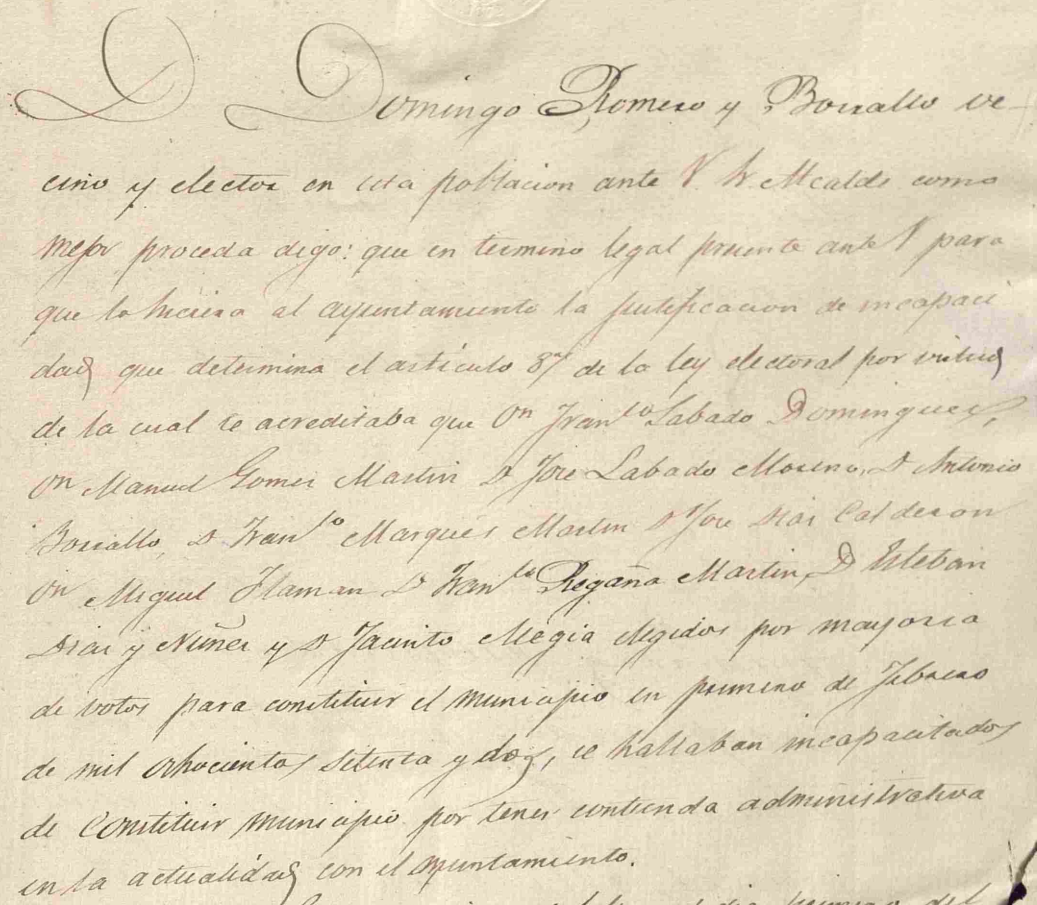 D. Domingo Romero y Borrallo ve-
cino y elector en esta poblacion ante V. Sr. Alcalde como
mejor proceda digo: que en termino legal presente ante V para
que lo hiciera al ayuntamiento la justificacion de incapaci
dad que determina el articulo 87 de la ley electoral por virtud
de la cual se acreditaba que Dn Franco Labado Dominguez,
Dn Manuel Gomez Martin D Jose Labado Moreno, D Antonio
Borrallo, D Franco Marques Martin D Jose Diaz Calderon
Dn Miguel Flaman D Franco Regaña Martin, D Esteban
Diaz y Nuñez y D Jacinto Megia elegidos por mayoria
de votos para constituir el municipio en primero de Febrero
de mil ochocientos setenta y dos, se hallaban incapacitados
de constituir municipio por tener contienda administrativa
en la actualidad con el Ayuntamiento.